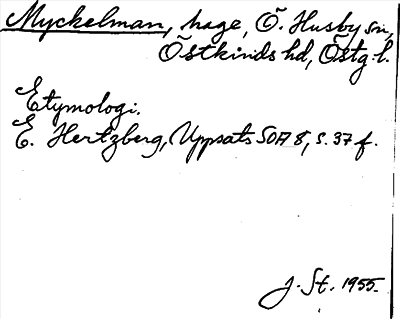 Myckelman, hage, Ö. Husby sn,
Östkinds hd, Östg. l.
Etymologi.
E. Hertzberg, Uppsats SOA 8, s. 37 f.
J. St. 1955.